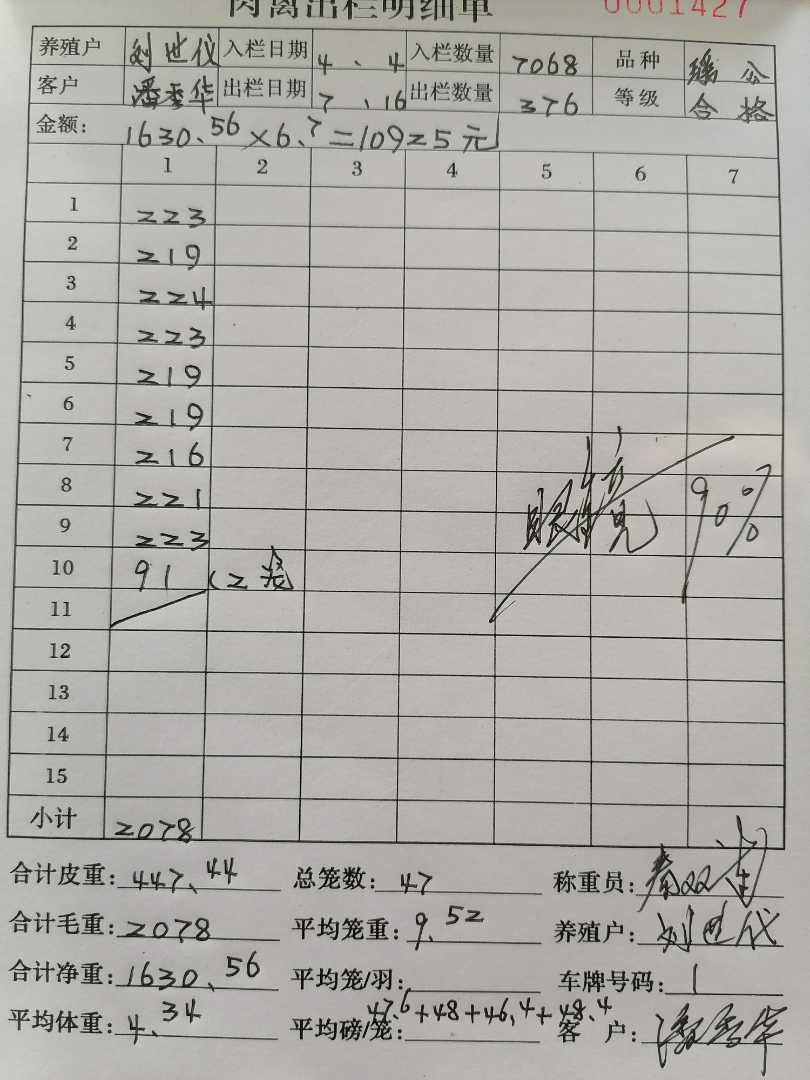 肉禽出栏明细单 0001427
养殖户 刘世仪 入栏日期 4、4 入栏数量 7068 品种 瑶公
客户 潘秀华 出栏日期 7、16 出栏数量 376 等级 合格
金额: 1630.56×6.7=10925元
1 2 3 4 5 6 7
1 223
2 219
3 224
4 223
5 219
6 219
7 216
8 221
9 223
10 91 (2笼
11
12
13
14
15
小计 2078
90%
合计皮重: 447.44 总笼数: 47 称重员: 秦双
合计毛重: 2078 平均笼重: 9.52 养殖户: 刘世仪
合计净重: 1630.56 平均笼/羽: 车牌号码: 1
平均体重: 4.34 平均磅/笼: 47.6+48+46.4+48.4 客户: 潘秀华